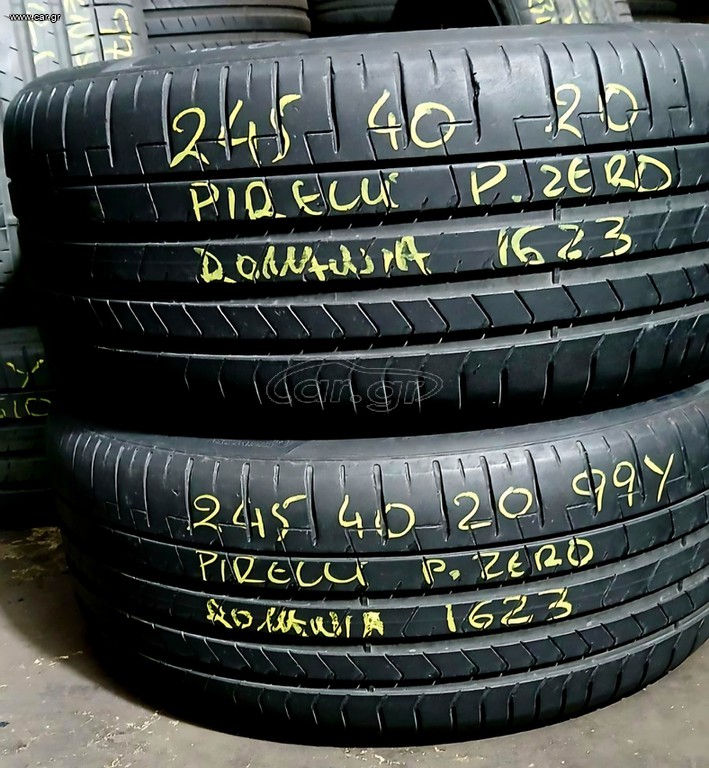 www.car.gr
245 40 20
PIRELLI P. ZERO
ROMANIA 1623
car.gr
245 40 20 99Y
PIRELLI P. ZERO
ROMANIA 1623